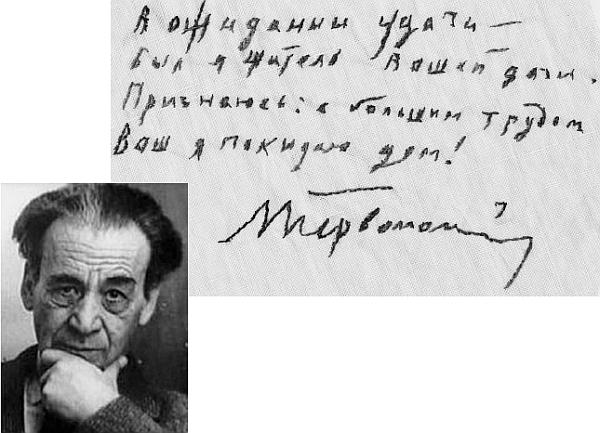 В ожидании удачи —
был я житель Вашей дачи.
Признаюсь: с большим трудом
Ваш я покидаю дом!
Л Первомайский